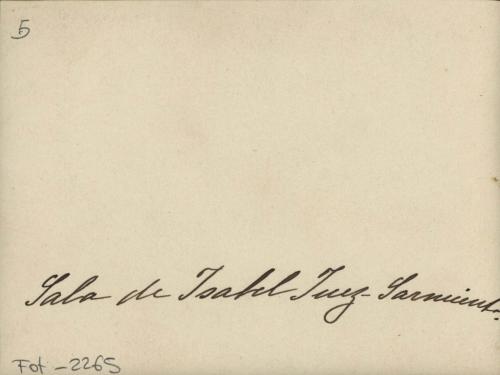 5
Sala de Isabel Juez-Sarmiento.
Fot-2265